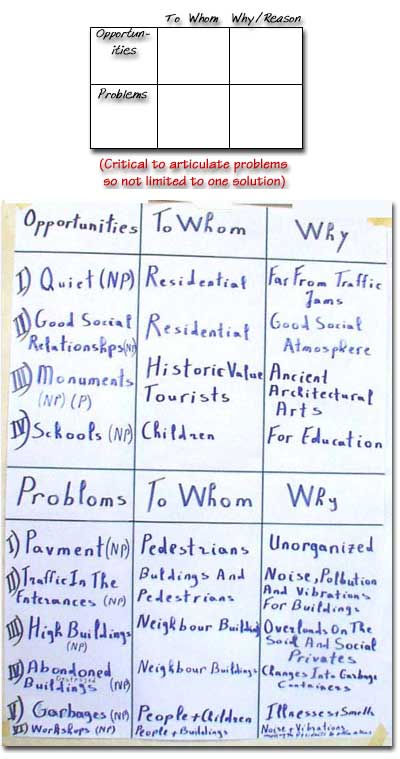 To Whom Why/Reason
Opportun-
ities
Problems
(Critical to articulate problems
so not limited to one solution)
Opportunities To Whom Why
I) Quiet (NP) Residential Far From Traffic
Jams
II) Good Social Residential Good Social
Relationshps (N) Atmosphere
III) Monuments Historic Value Ancient
(NP) (P) Tourists Architectural
Arts
IV) Schools (NP) Children For Education
Probloms To Whom Why
I) Pavment (NP) Pedestrians Unorganized
II) Traffic In The Buldings And Noise, Polbution
Enterances (NP) Pedestrians And Vibrations
For Buildings
III) High Buildings Neighbour Building Overloads On The
(NP) Soil And Social
Privates
IV) Abondoned Neighbour Buildings Changes Into Garbage
Buildings (NP) Containers
V) Garbages (NP) People + Children Illnesses + Smell
VI) Workshops (NP) People + Buildings Noise + Vibrations